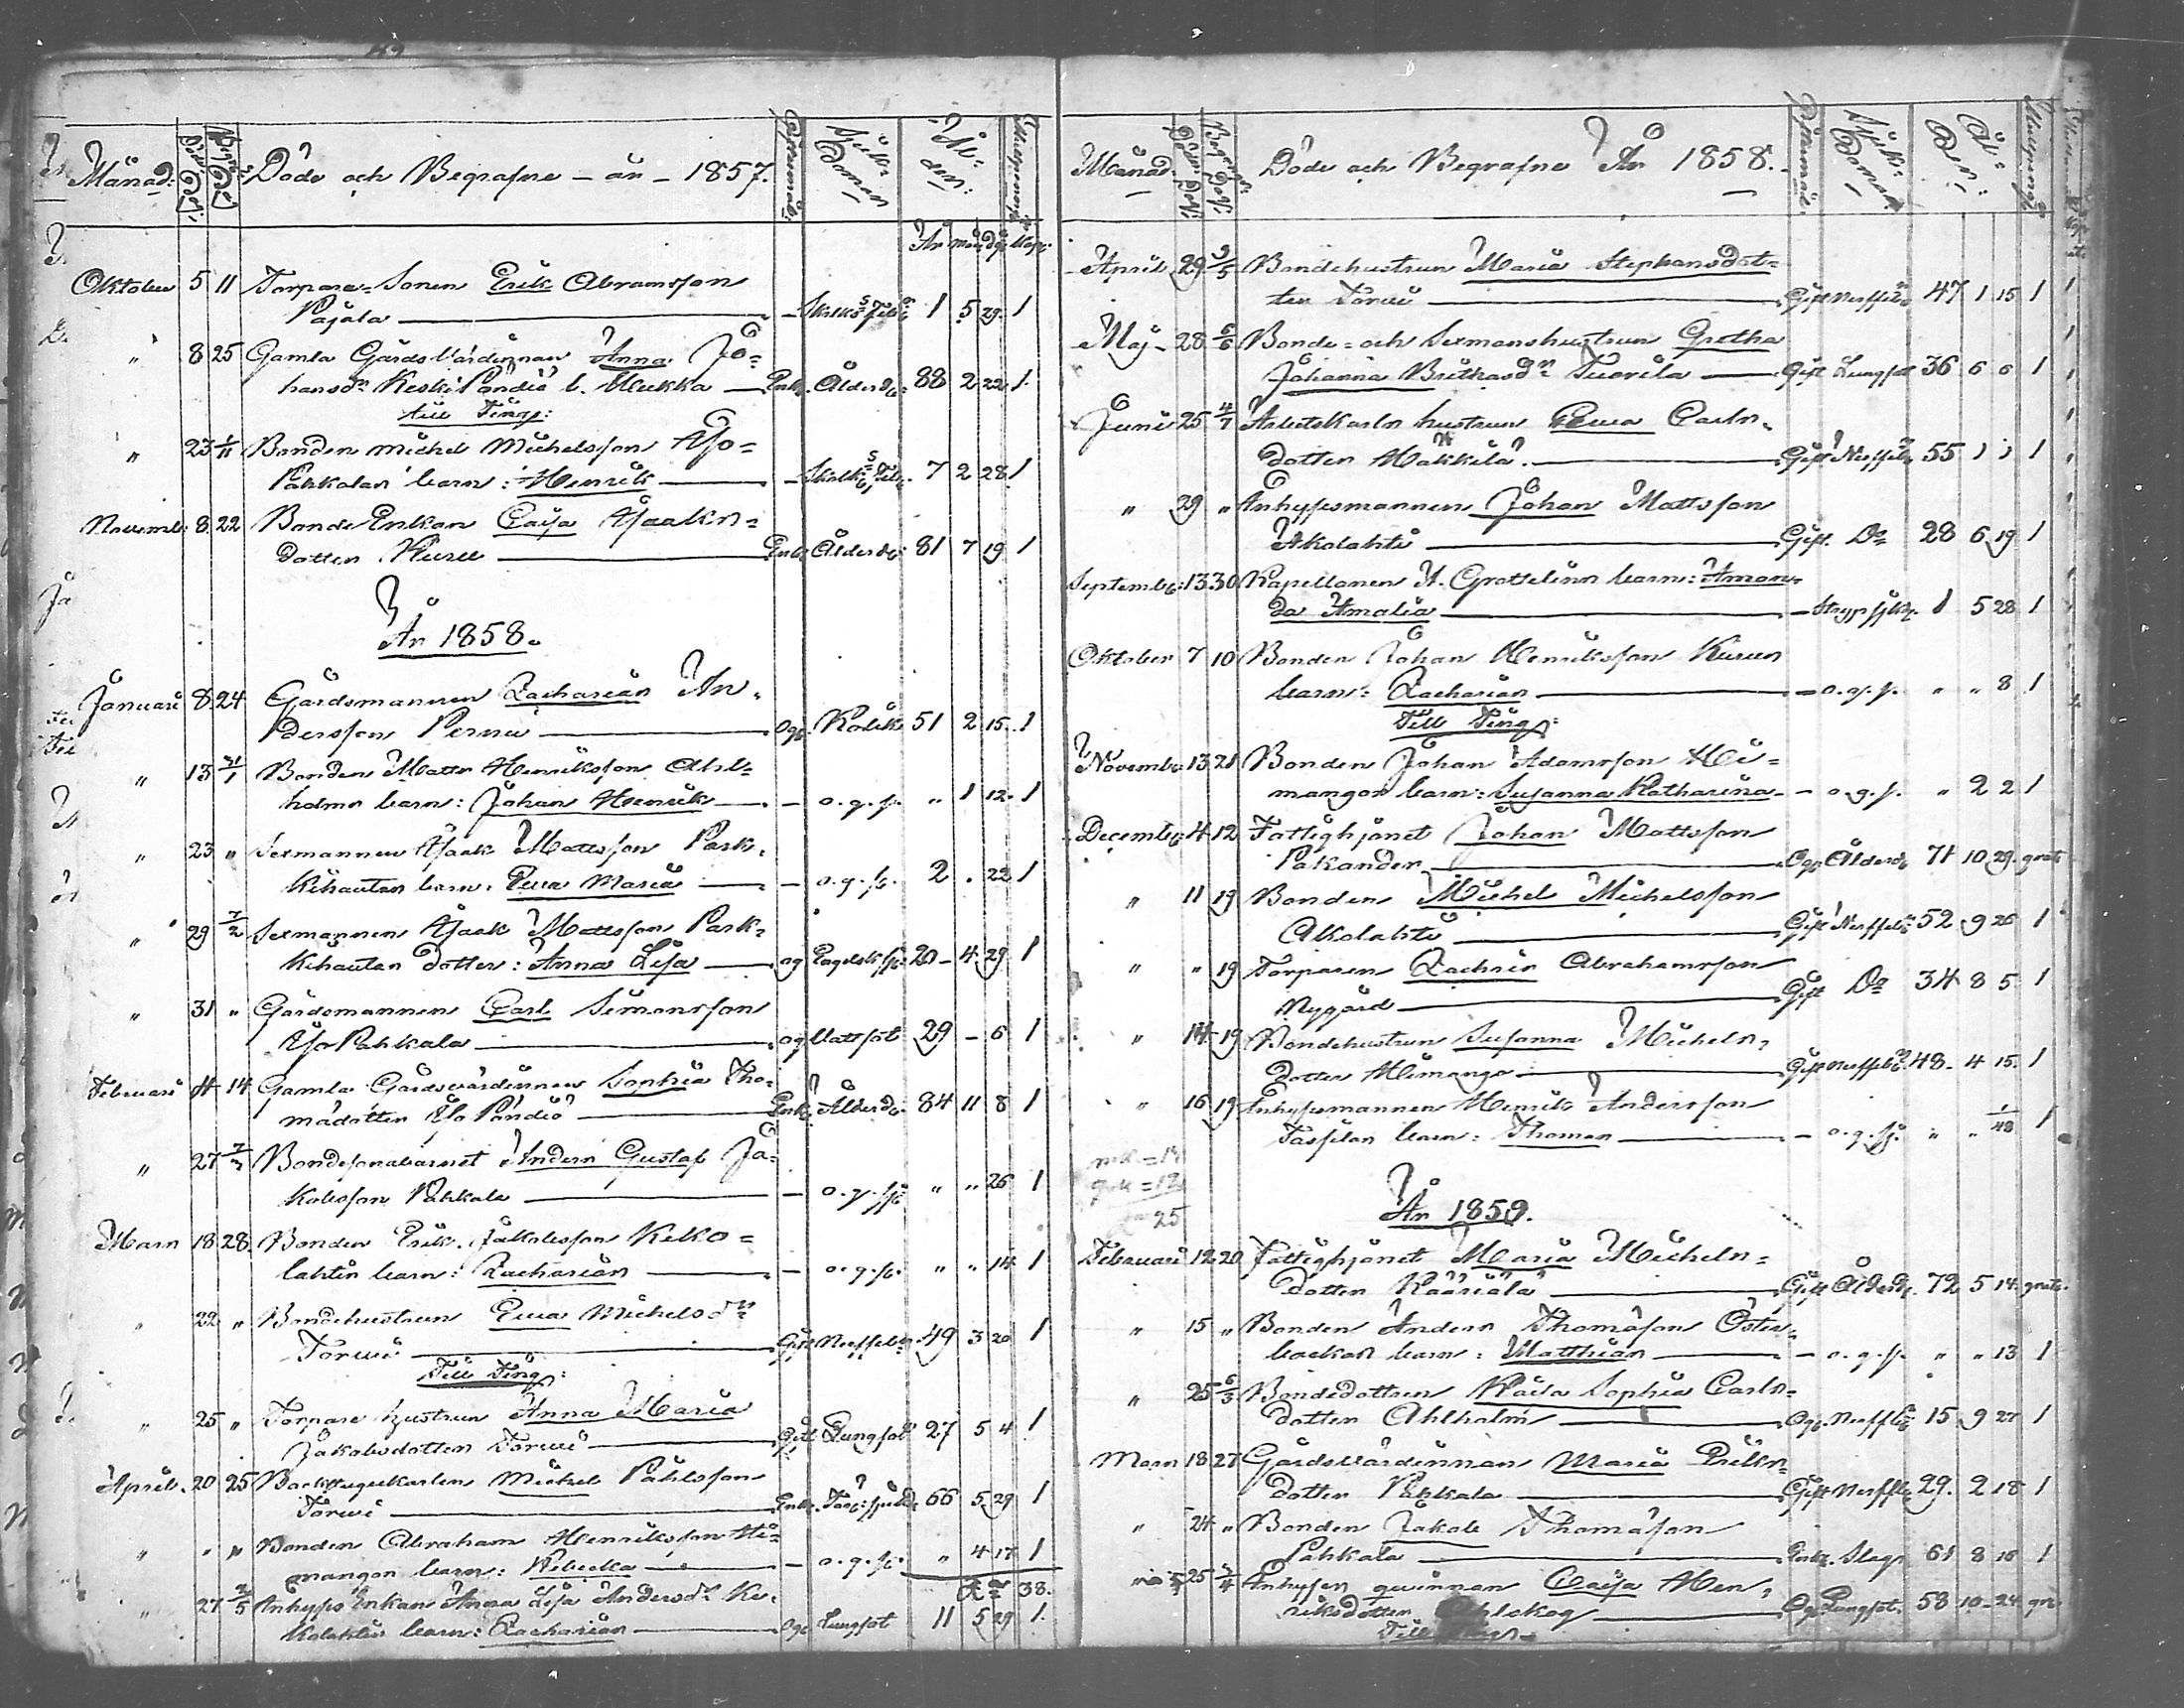 Månad: Döde och Begrafne - år - 1857. Ål-
den:
År mån dgr
Oktober 5 11 Torpare-Sonen Erik Abramsson
Pajala 1 5 29 1
" 8 25 Gamla Gårds Värdinnan Anna Jo-
hansdr Keski Pändiö l. Mukka Enk. Ålderd. 88 2 22 1
till Tings:
" 23 1/11 Bonden Michel Michelsson Yso-
Pahkalan barn: Henrik 7 2 28 1
Novemb: 8 22 Bonde Enkan Caisa Isaaks-
dotter Kuru Enk. Ålderd: 81 7 19 1
År 1858.
Januari 8 24 Gårdsmannen Zacharias An-
dersson Pernu Ogt. Kolik 51 2 15 1
" 13 31/1 Bonden Matts Henriksson Ahl-
holms barn: Johan Henrik - o.g.s. " 1 12 1
" 23 " Sexmannen Isaak Mattsson Park-
kihautas barn: Ewa Maria - o.g.s. 2 . 22 1
" 29 7/2 Sexmannen Isaak Mattsson Park-
kihautas dotter: Anna Lisa og 20 - 4 29 1
" 31 " Gårdsmannen Carl Simonsson
Yso Pahkala og Vattsot 29 - 6 1
Februari 4 14 Gamla Gårdsvärdinnan Sophia Tho-
madotter Yso Pändiö Enk. Ålderd: 84 11 8 1
" 27 7/3 Bondesonabarnet Anders Gustaf Ja-
kobsson Pahkala - o.g.s. " " 26 1
Mars 18 28 Bonden Erik Jakobsson Keko-
lahtis barn: Zacharias - o.g.s. " " 14 1
" 22 " Bondehustrun Ewa Michelsdr
Torwi Gift Nerffeb. 49 3 20 1
Till Tings:
" 25 " Torpare hustrun Anna Maria
Jakobsdotter Torwi Gift Lungsot 27 5 4 1
April 20 25 Backstugukarlen Michel Påhlsson
Torwi Enkl. 66 5 29 1
" " " Bonden Abraham Henriksson Hi-
mangos barn: Rebecka - o.g.s. " 4 17 1
38.
" 27 2/5 Inhyses Enkan Anna Lisa Andersdr Ke-
kolahtis barn: Zacharias Ogt Lungsot 11 5 29 1
Månad. Döde och Begrafne År 1858. Ål-
der:
April 29 9/5 Bondehustrun Maria Stephansdot-
ter Torwi Gift Nerffeb. 47 1 15 1
Maj 28 6/6 Bonde- och Sexmanshustrun Gretha
Johanna Brithasdr Tuorila Gift Lungsot 36 6 6 1
Juni 25 4/7 Arbetskarls hustrun Ewa Carls-
dotter Mäkkilä Gift Nerffeb. 55 1 1 1
" 29 " Inhysesmannen Johan Mattsson
Akolahti Gift. Do 28 6 19 1
Septemb: 13 30 Kapellanen A. Grottelins barn: Aman-
da Amalia - 1 5 28 1
Oktober 7 10 Bonden Johan Henriksson Kurus
barn: Zacharias - o.g.s. " " 8 1
Till Tings:
Novemb: 13 21 Bonden Johan Adamsson Hi-
mangos barn: Susanna Katharina - o.g.s. " 2 2 1
Decemb: 4 12 Fattighjonet Johan Mattsson
Pakander Ogt Ålderd. 71 10 29 grat
" 11 19 Bonden Michel Michelsson
Akolahti Gift Nerffeb. 52 9 26 1
" " 19 Torparen Zachris Abrahamsson
Nygård Gift Do 34 8 5 1
" 14 19 Bondehustrun Susanna Michels-
dotter Himango Gift Nerffeb. 48 4 15 1
" 16 19 Inhysesmannen Henrik Andersson
Tassilas barn: Thomas - o.g.s. " " 1/48 1
25
År 1859.
Februari 12 20 Fattighjonet Maria Michels-
dotter Kääriälä Gift Ålderd. 72 5 14 gratis
" 15 " Bonden Anders Thomasson Öster-
backas barn: Matthias - o.g.s. " " 13 1
" 25 6/3 Bondedottren Kaisa Sophia Carls-
dotter Ahlholm Ogt. Nerffeb. 15 9 27 1
Mars 18 27 Gårdsvärdinnan Maria Eriks-
dotter Pahkala Gift Nerffeb. 29. 2 18 1
" 24 " Bonden Jakob Thomasson
Pahkala Enkl. Slag 61 8 16 1
25 3/4 Inhyses qwinnan Caisa Hen-
riksdotter Ahlskog Ogt Lungsot. 58 10 24 gra
Till Tings